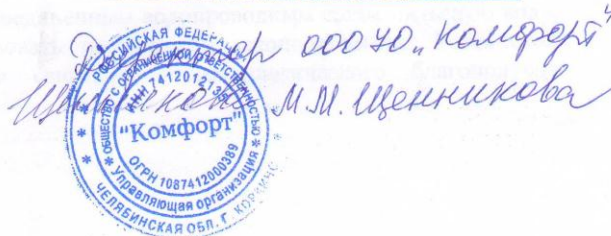 Директор ООО УО „Комфорт"
Щенникова М.М. Щенникова
* РОССИЙСКАЯ ФЕДЕРАЦИЯ
ЧЕЛЯБИНСКАЯ ОБЛ. Г. КОРКИНО
ОБЩЕСТВО С ОГРАНИЧЕННОЙ ОТВЕТСТВЕННОСТЬЮ
* Управляющая организация *
ИНН
"Комфорт"
ОГРН 1087412000389